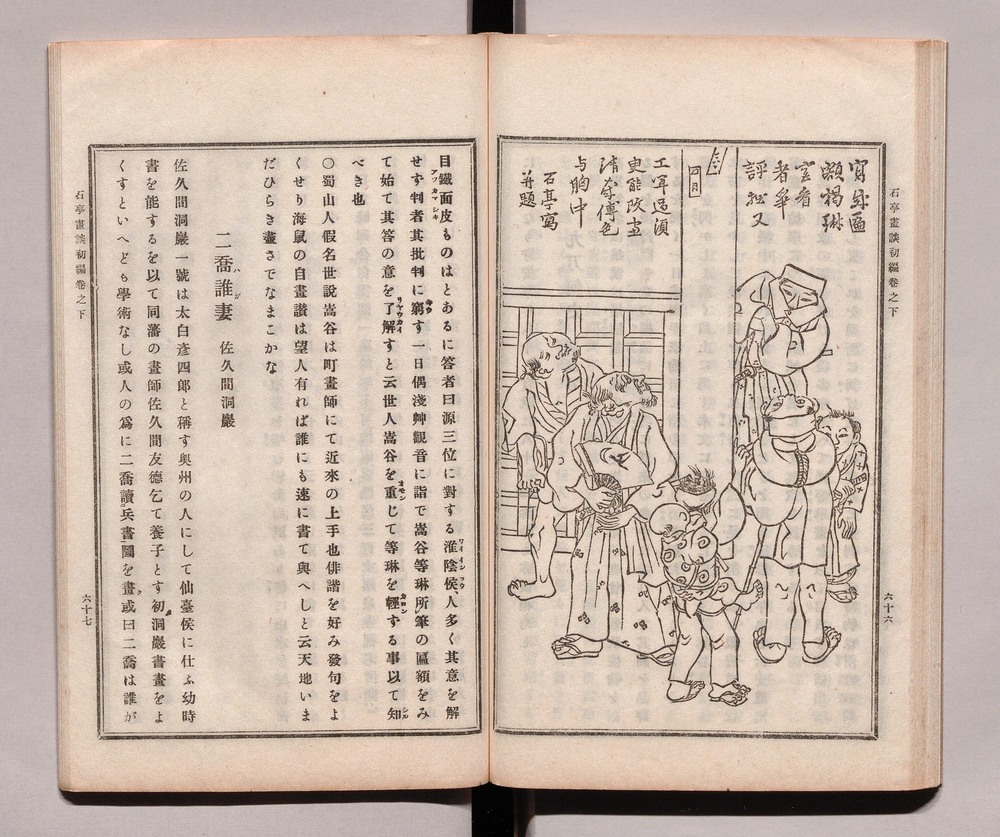 石亭畫談初編卷之下
六十六
評
又
工
更能改
與胸中
石亭寫
并題
目鐵面皮ものはとあるに答者曰源三位に對する淮陰侯、人多く其意を解
せず判者其批判に窮す一日偶淺艸觀音に詣で嵩谷等琳所筆の區額をみ
て始て其答の意を了解すと云世人嵩谷を重じて等琳を輕ずる事以て知
べき也
〇蜀山人假名世說嵩谷は町畫師にて近來の上手也俳諧を好み發句をよ
くせり海鼠の自畫讃は望人有れば誰にも速に書て與へしと云天地いま
だひらき盡さでなまこかな
二喬誰妻 佐久間洞巖
佐久間洞巖一號は太白彥四郎と稱す奥州の人にして仙臺侯に仕ふ幼時
書を能するを以て同藩の畫師佐久間友德乞て養子とす初洞巖書畫をよ
くすといへども學術なし或人の爲に二喬讀兵書圖を畫或曰二喬は誰が
石亭畫談初編卷之下
六十七